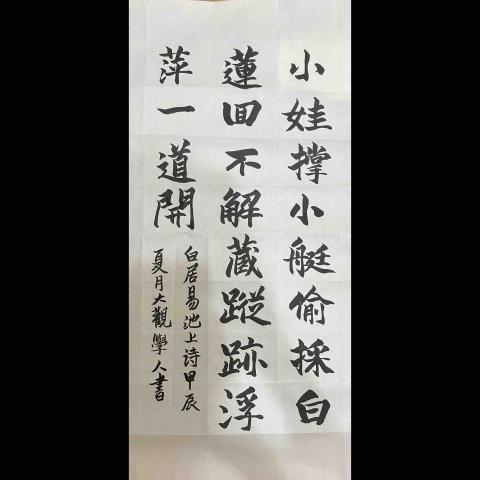 小娃撑小艇偷採白
蓮回不解藏蹤跡浮
萍一道開
白居易池上诗甲辰
夏月大觀學人書